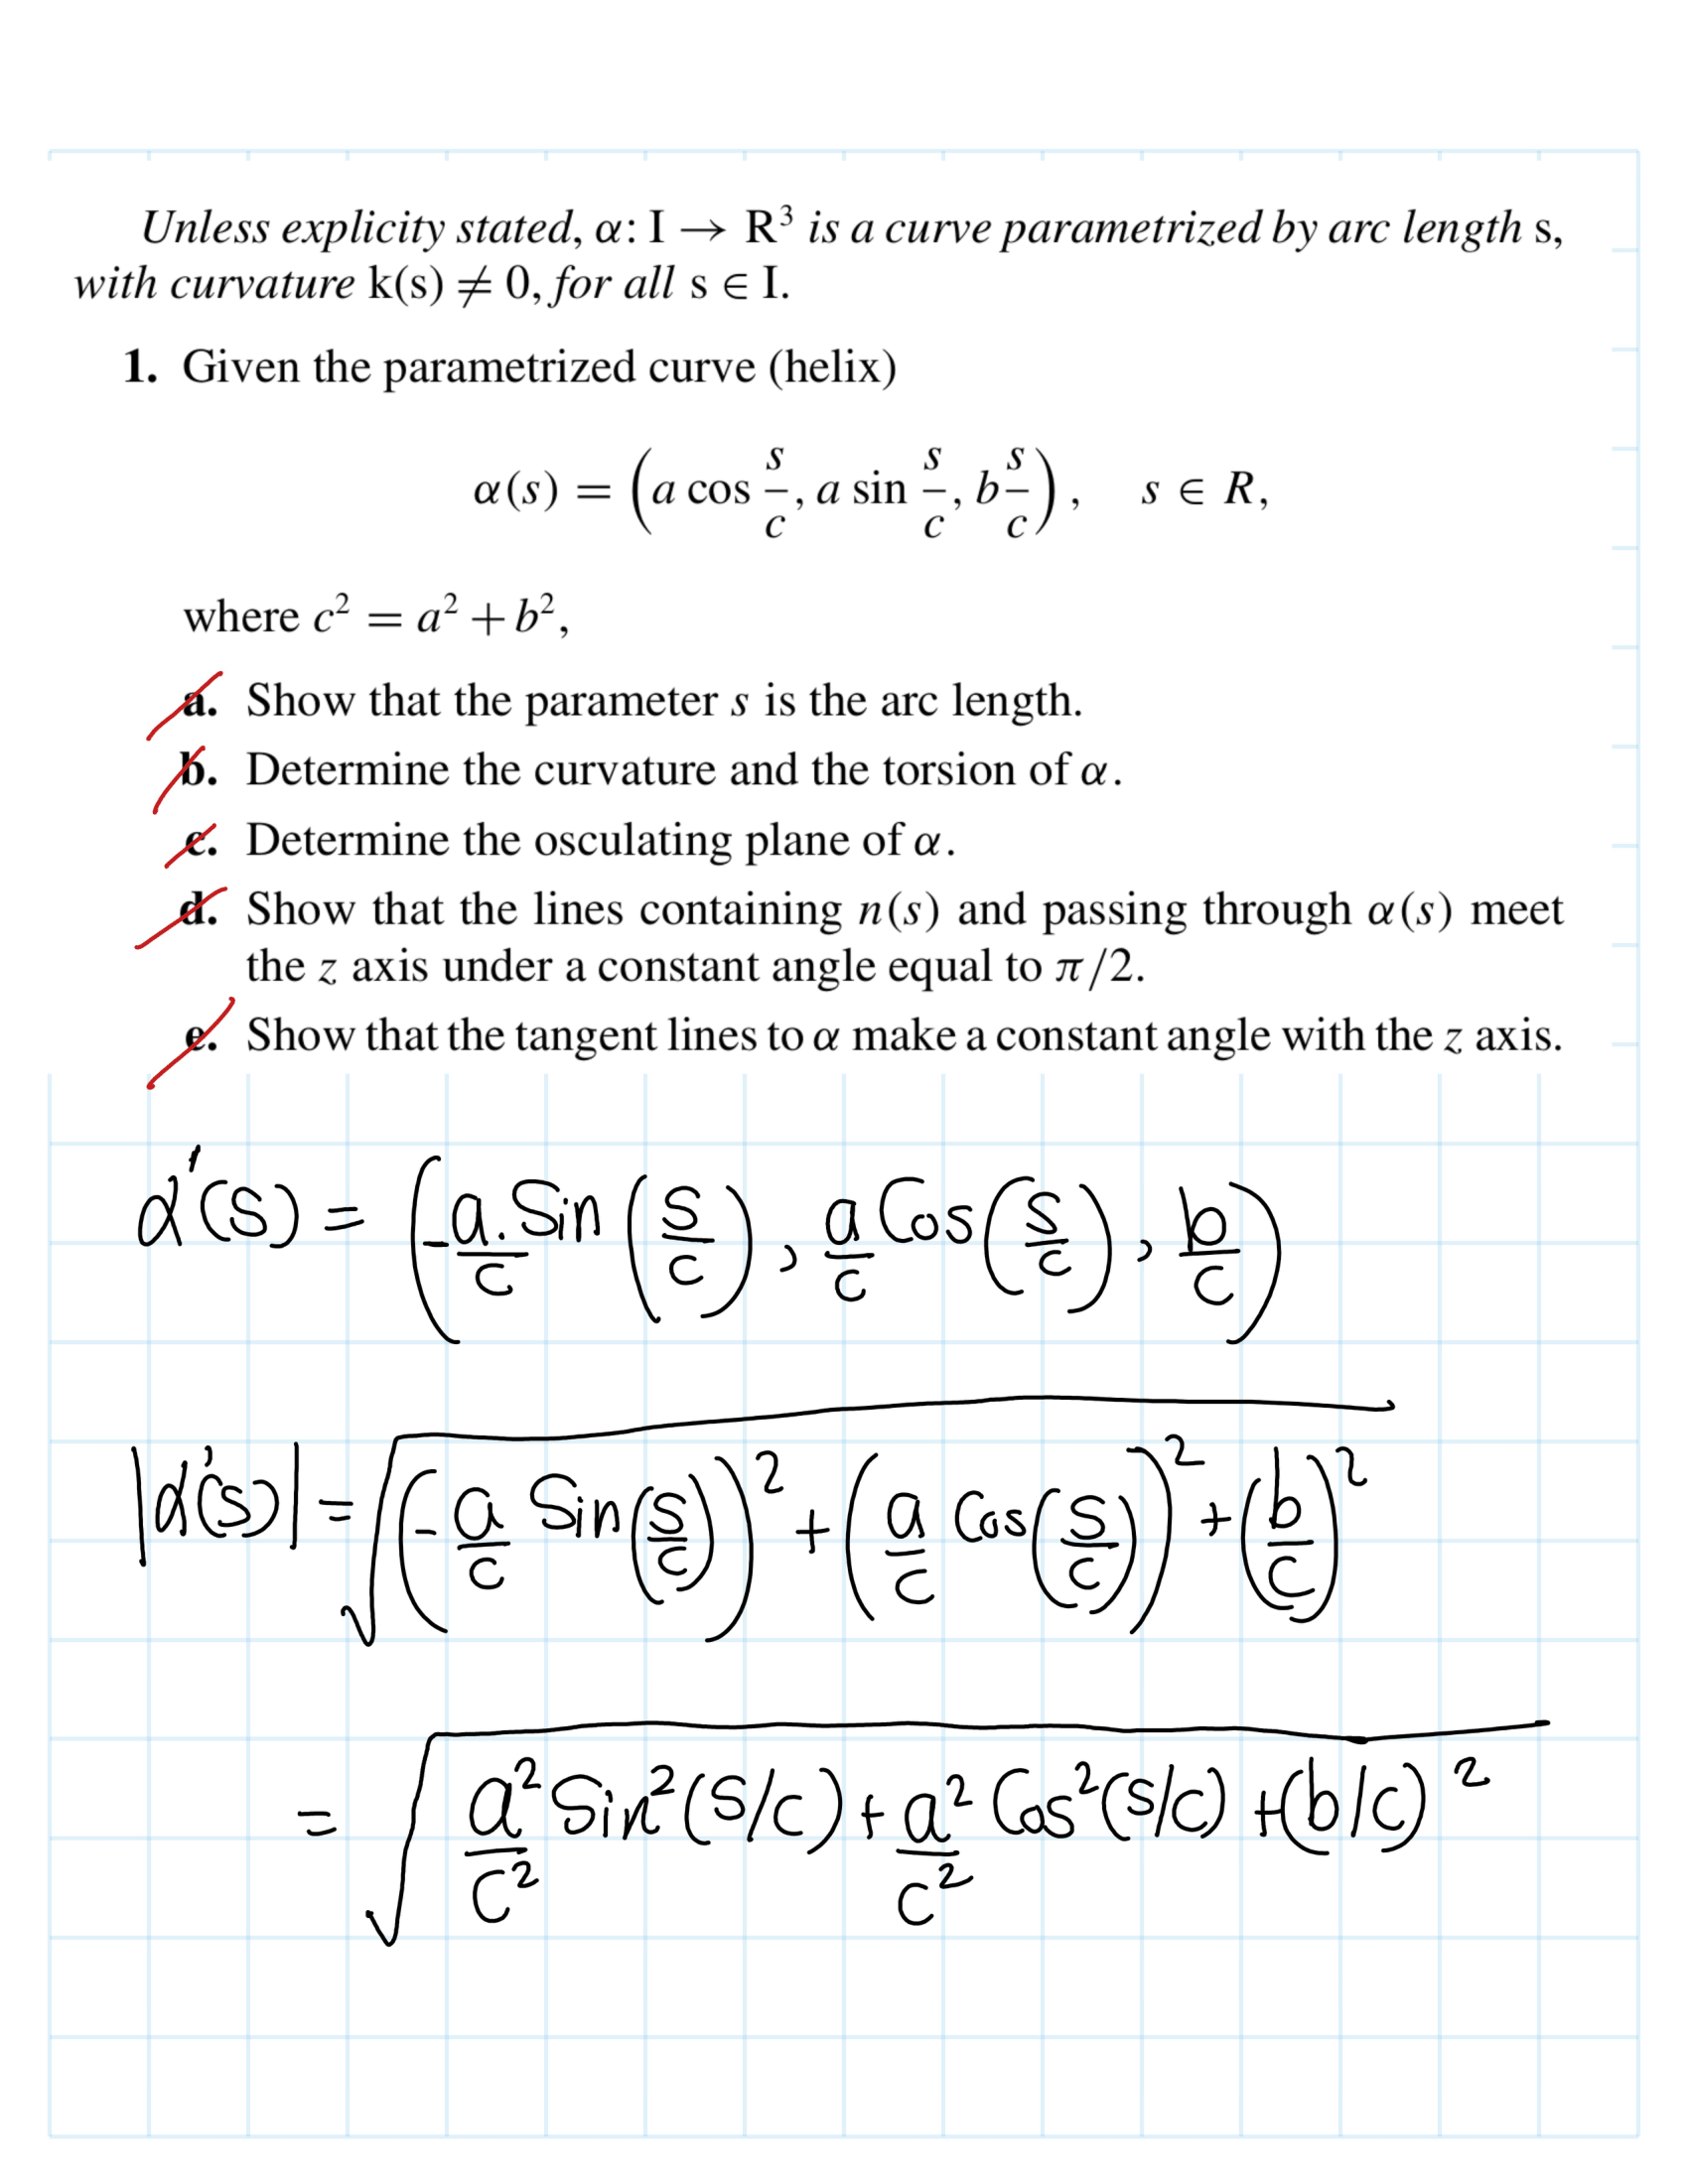 Unless explicity stated, α: I → R³ is a curve parametrized by arc length s,
with curvature k(s) ≠ 0, for all s ∈ I.
1. Given the parametrized curve (helix)
α(s) = (a cos s/c, a sin s/c, b s/c), s ∈ R,
where c² = a² + b²,
a. Show that the parameter s is the arc length.
b. Determine the curvature and the torsion of α.
c. Determine the osculating plane of α.
d. Show that the lines containing n(s) and passing through α(s) meet
the z axis under a constant angle equal to π/2.
e. Show that the tangent lines to α make a constant angle with the z axis.
α'(s) = (-a/c . Sin (s/c), a/c Cos (s/c), b/c)
|α'(s)| = √((-a/c Sin(s/c))² + (a/c Cos(s/c))² + (b/c)²)
= √(a²/c² Sin²(s/c) + a²/c² Cos²(s/c) + (b/c)²)